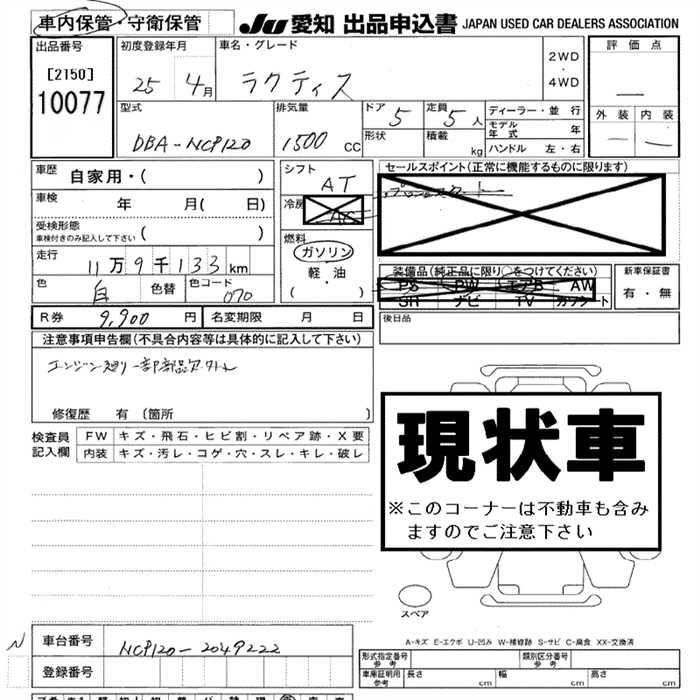 車内保管・守衛保管 JU 愛知 出品申込書 JAPAN USED CAR DEALERS ASSOCIATION
出品番号 初度登録年月 車名・グレード 2WD・4WD 評価点
[2150] 25年 4月 ラクティス —
10077
型式 排気量 ドア 5 定員 5人 ディーラー・並行 外装 内装
DBA-NCP120 1500 CC 形状 積載 kg モデル年式 年 — —
ハンドル 左・右
車歴 自家用・( ) シフト AT セールスポイント(正常に機能するものに限ります)
車検 年 月( 日) 冷房 AC
受検形態 ( )
車検付きのみ記入して下さい
燃料 ガソリン 軽・油 ( )
走行 11万9千133km 装備品(純正品に限り○をつけてください) 新車保証書
色 白 色替 色コード 070 PS PW エアB AW 有・無
SR ナビ TV カワシート
R券 9,900円 名変期限 月 日 後日品
注意事項申告欄(不具合内容等は具体的に記入して下さい)
エンジン廻り一部部品欠
修復歴 有 〔箇所 〕
検査員 FW キズ・飛石・ヒビ割・リペア跡・X要
記入欄 内装 キズ・汚レ・コゲ・穴・スレ・キレ・破レ
現状車
※このコーナーは不動車も含み
ますのでご注意下さい
スペア
A-キズ E-エクボ U-凹み W-補修跡 S-サビ C-腐食 XX-交換済
N 車台番号 NCP120-2049222
登録番号
形式指定番号 参考 類別区分番号 参考
車庫証明用 参考 長さ cm 幅 cm 高さ cm